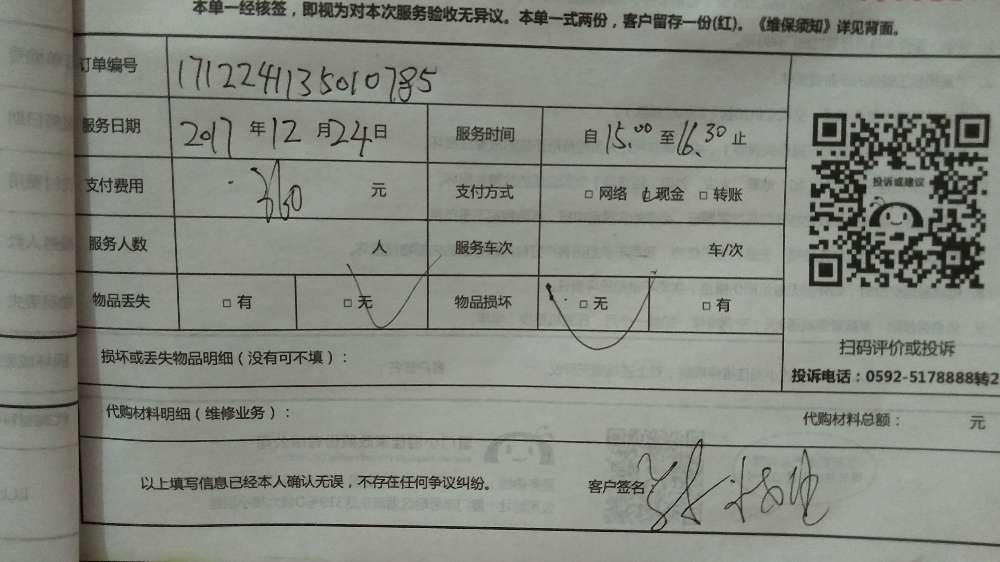 本单一经核签，即视为对本次服务验收无异议。本单一式两份，客户留存一份(红)。《维保须知》详见背面。
订单编号 1712241135010785
服务日期 2017 年 12 月 24 日 服务时间 自 15.00 至 16.30 止
支付费用 360 元 支付方式 □ 网络 □ 现金 □ 转账
服务人数 人 服务车次 车/次
物品丢失 □ 有 □ 无 物品损坏 □ 无 □ 有
投诉或建议
扫码评价或投诉
投诉电话：0592-5178888转2
损坏或丢失物品明细（没有可不填）：
代购材料明细（维修业务）： 代购材料总额： 元
以上填写信息已经本人确认无误，不存在任何争议纠纷。 客户签名